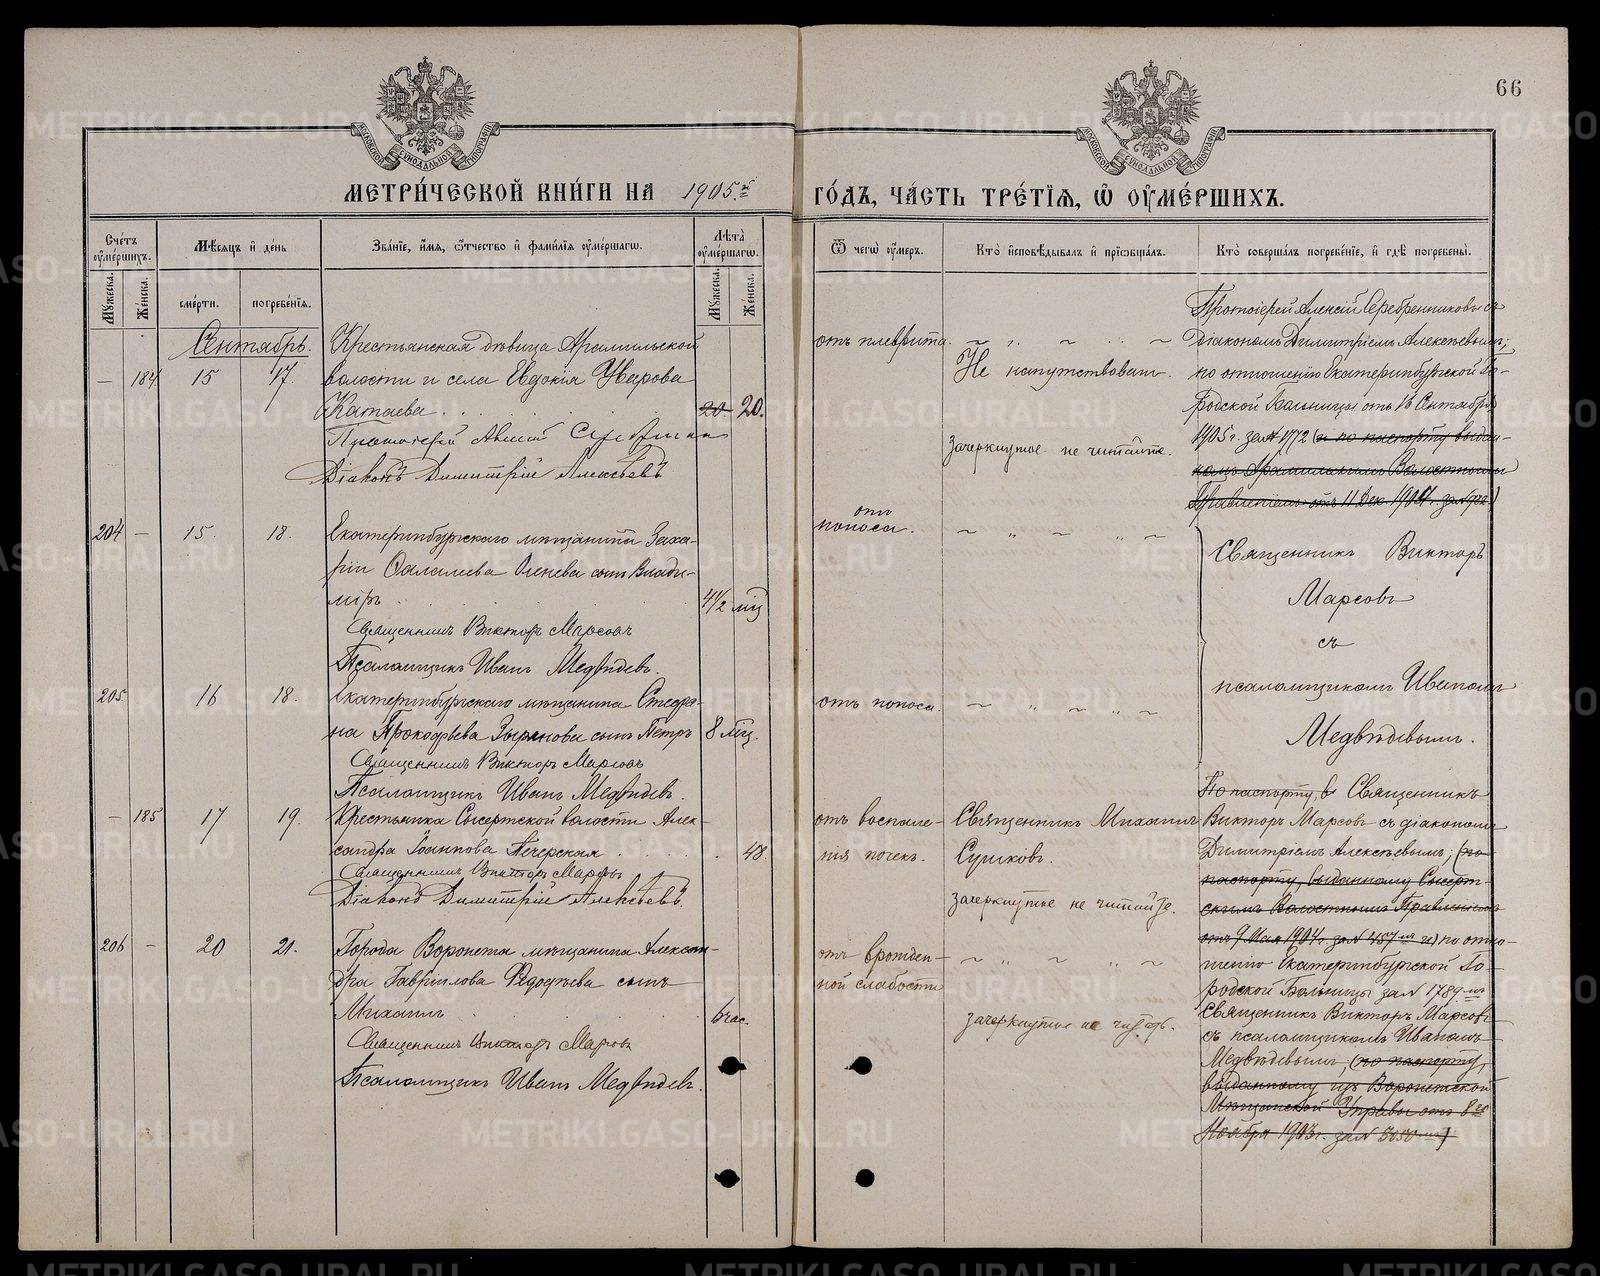 66
МОСКОВСКОЙ СУНОДАЛЬНОЙ ТИПОГРАФІИ
МОСКОВСКОЙ СУНОДАЛЬНОЙ ТИПОГРАФІИ
МЕТРИ́ЧЕСКОЙ КНИ́ГИ НА 1905.й
ГО́ДЪ, ЧА́СТЬ ТРЕ́ТІѦ, Ѡ҆ ОУ҆МЕ́РШИХЪ.
Сче́тъ оумершихъ.
Мѣ́сяцъ и де́нь
Зва́ніе, и́мя, ѻ҆́тчество и фами́лія оуме́ршагѡ.
Лѣта̀ оуме́ршагѡ.
Ѿ чегѡ̀ оу́меръ.
Кто̀ и҆сповѣ́дывалъ и пріѡбща́лъ.
Кто̀ соверша́лъ погребе́ніе, и гдѣ̀ погребены̀.
Му́жеска.
Же́нска.
сме́рти.
погребе́нія.
Му́жеска.
Же́нска.
Сентябрь.
— 184 15 17.
Крестьянская дѣвица Арамильской
волости и села Евдокія Уварова
Катаева . . . 20 20.
Протоіерей Алексій
Діаконъ Димитрій Алексѣевъ
отъ плеврита.
Не напутствован.
зачеркнутое не читайте.
Протоіерей Алексій Серебренниковъ съ
діакономъ Димитріемъ Алексѣевымъ;
по отношенію Екатеринбургской Го-
родской Больницы отъ 16 Сентября
1905 г. за № 1772 (и по паспорту выдан-
ному Арамильскимъ Волостнымъ
Правленіемъ отъ 11 Дек. 1904 г. за №
204 — 15. 18.
Екатеринбургскаго мѣщанина Заха-
ріи Савелиева сынъ Влади-
міръ . . . 4½ мѣс
Священникъ Викторъ Марсовъ
Псаломщикъ Иванъ Медвѣдевъ.
отъ
поноса.
Священникъ Викторъ
Марсовъ
съ
псаломщикомъ Иваномъ
Медвѣдевымъ.
205. 16 18.
Екатеринбургскаго мѣщанина Стефа-
на Прокофьева Зырянова сынъ Петръ 8 мѣс.
Священникъ Викторъ Марсовъ
Псаломщикъ Иванъ Медвѣдевъ.
отъ поноса.
— 185 17 19.
Крестьянка Сысертской волости Алек-
сандра Іоаннова Печерская . . . 48.
Священникъ Викторъ Марсовъ
Діаконъ Димитрій Алексѣевъ.
отъ воспале-
нія почекъ.
Священникъ Михаилъ
Сушковъ.
зачеркнутое не читайте.
По паспорту, в Священникъ
Викторъ Марсовъ съ діакономъ
Димитріемъ Алексѣевымъ; (по
паспорту, выданному Сысерт-
скимъ Волостнымъ Правленіемъ
отъ 9 Мая 1904 г. за № 457 и) по отно-
шенію Екатеринбургской Го-
родской Больницы за № 1789.
206 — 20 21.
Города Воронежа мѣщанина Александ-
дра Гавріилова Федофѣева сынъ
Михаилъ . . . 6 час.
Священникъ Викторъ Марсовъ
Псаломщикъ Иванъ Медвѣдевъ.
отъ врожден-
ной слабости
зачеркнутое не чит.
Священникъ Викторъ Марсовъ
съ псаломщикомъ Иваномъ
Медвѣдевымъ; (по паспорту,
выданному изъ Воронежской
Мѣщанской Управы отъ 8го
Ноября 1903 г. за № 5050)
METRIKI.GASO-URAL.RU